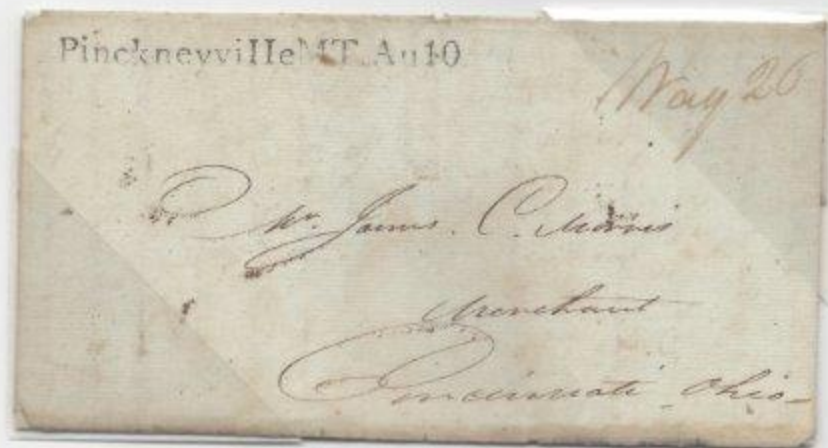 PinckneyvilleMT.Au10
Way 26
Mr. James. C. Morris
Merchant
Cincinnati Ohio